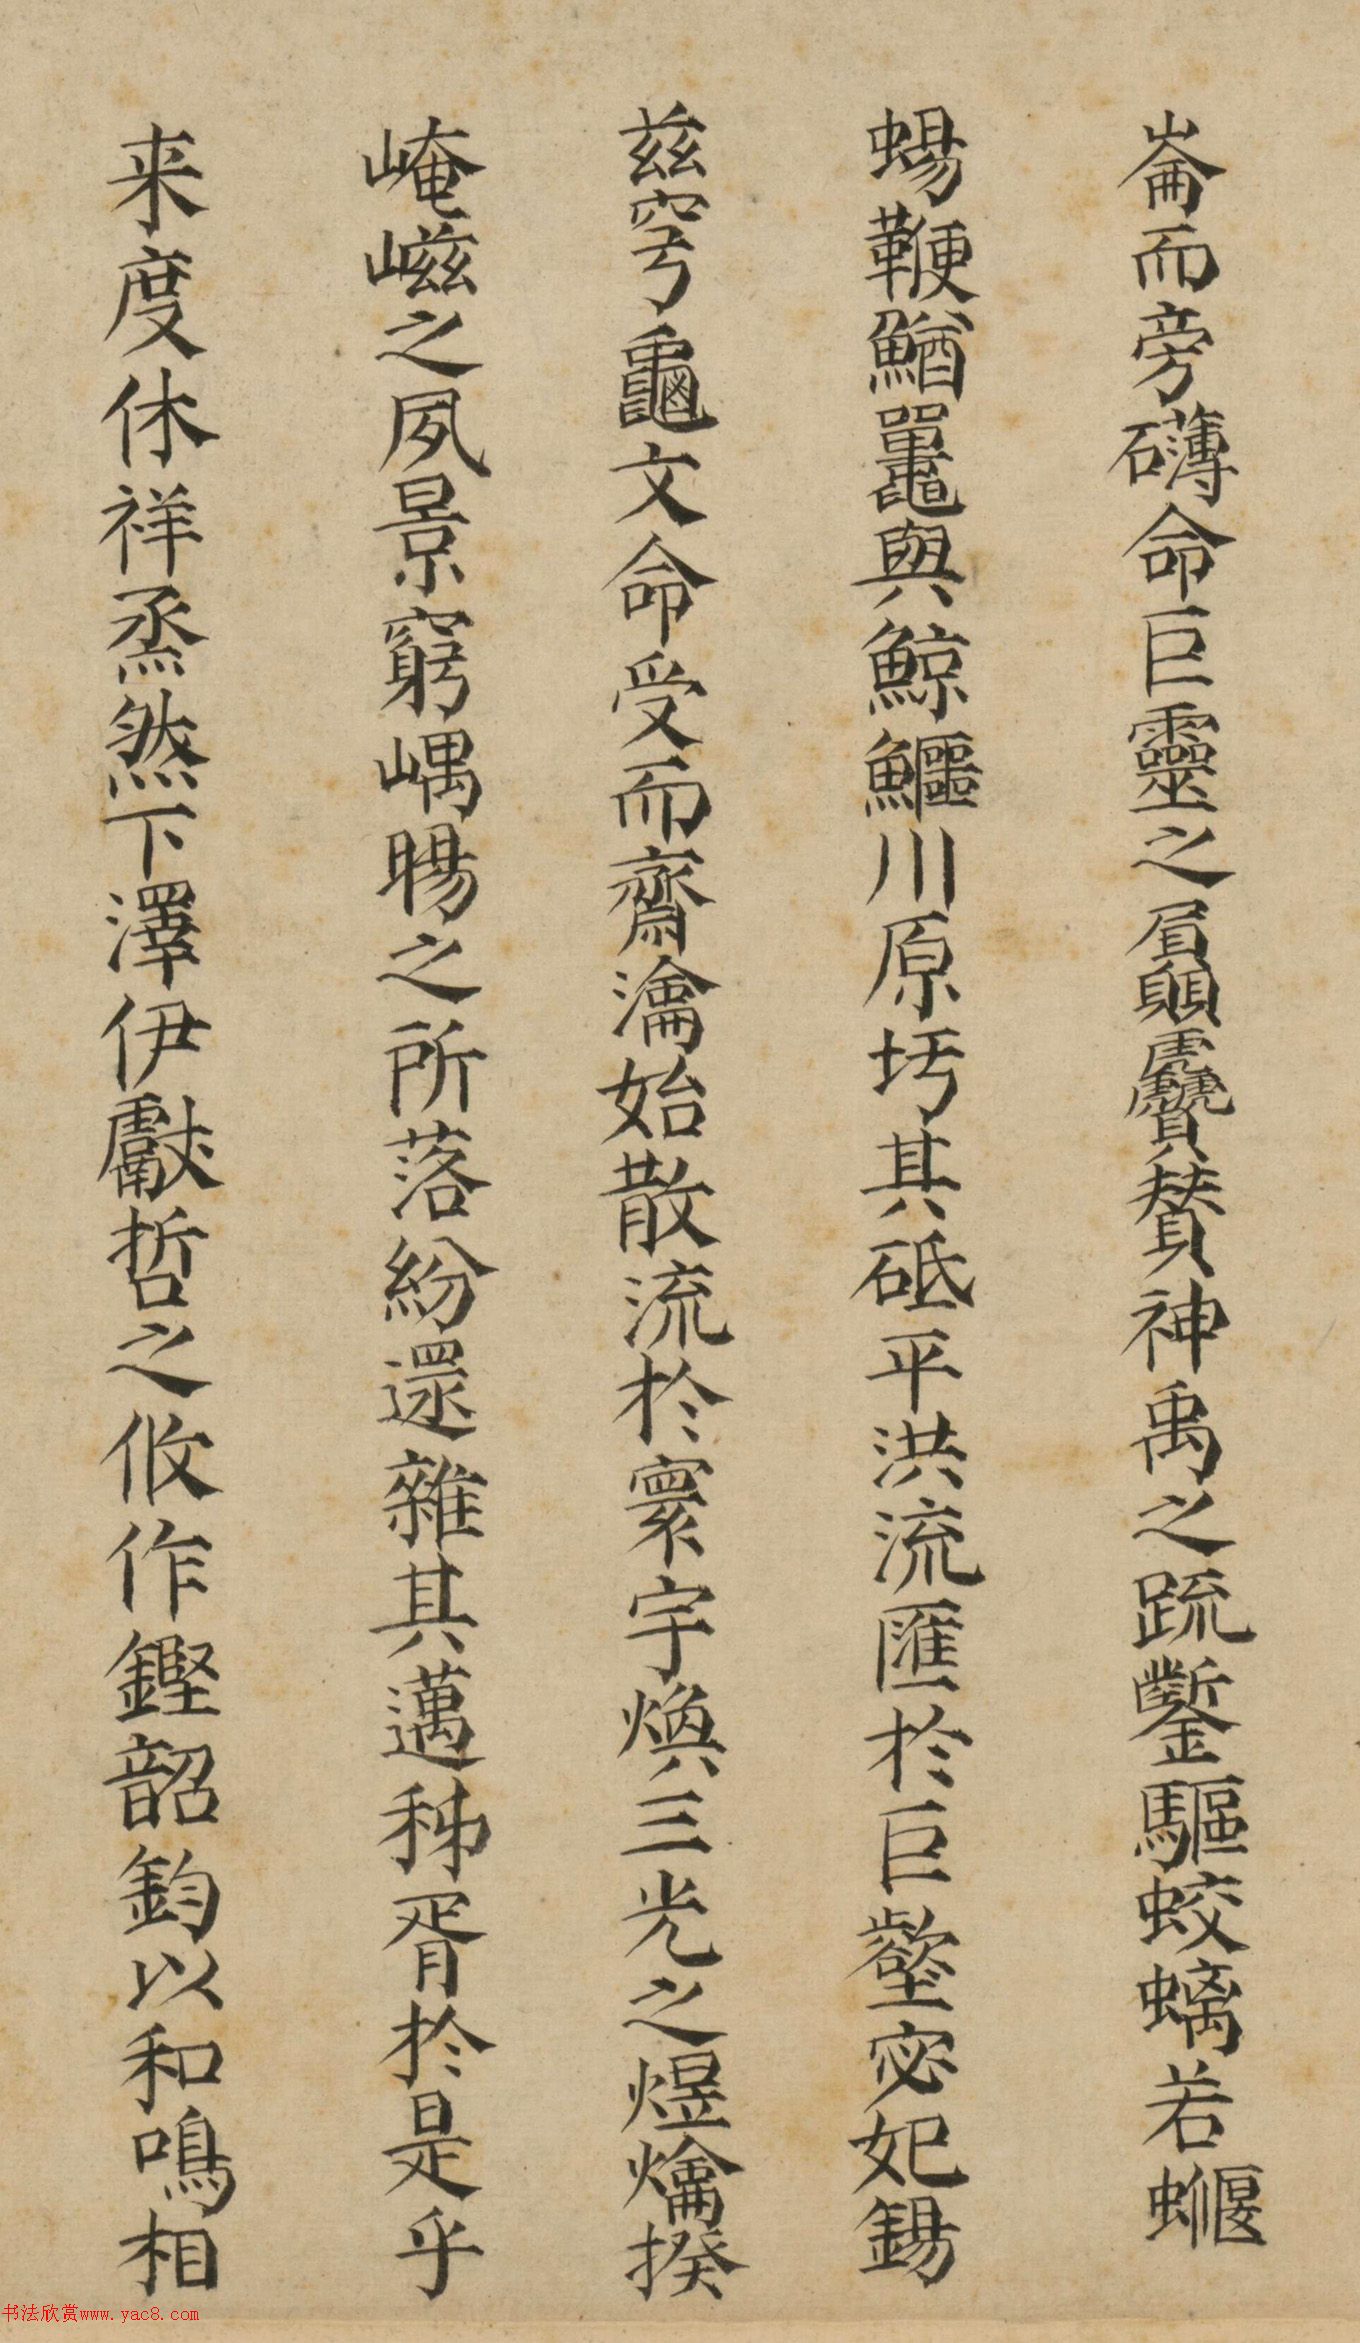 崙而旁礴命巨靈之屓贔贙贊神禹之疏鑿驅蛟螭若蝘
蜴鞭鰌鼉與鯨鱷川原圬其砥平洪流匯於巨壑宓妃錫
茲穹龜文命受而齋瀹始散流於寰宇煥三光之煜爚揆
崦嵫之夙景窮嵎暘之所落紛還雜其邁秭胥於是乎
来度休祥烝然下澤伊獻哲之攸作鏗韶鈞以和鳴相
书法欣赏www.yac8.com